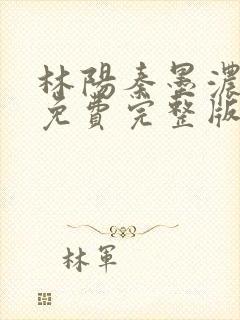 林陽秦墨濃
免費完整版
林軍